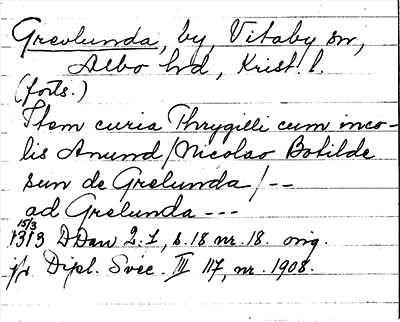 Grevlunda, by, Vitaby sn,
Albo hd, Krist. l.
(forts.)
Item curia Thrygilli cum inco-
lis Anund/Nicolao Botilde
sun de Grelunda/--
ad Grelunda ---
15/3
1313 DDan 2:7, s. 18 nr. 18. orig.
jfr Dipl. Svec. III 117, nr. 1908.